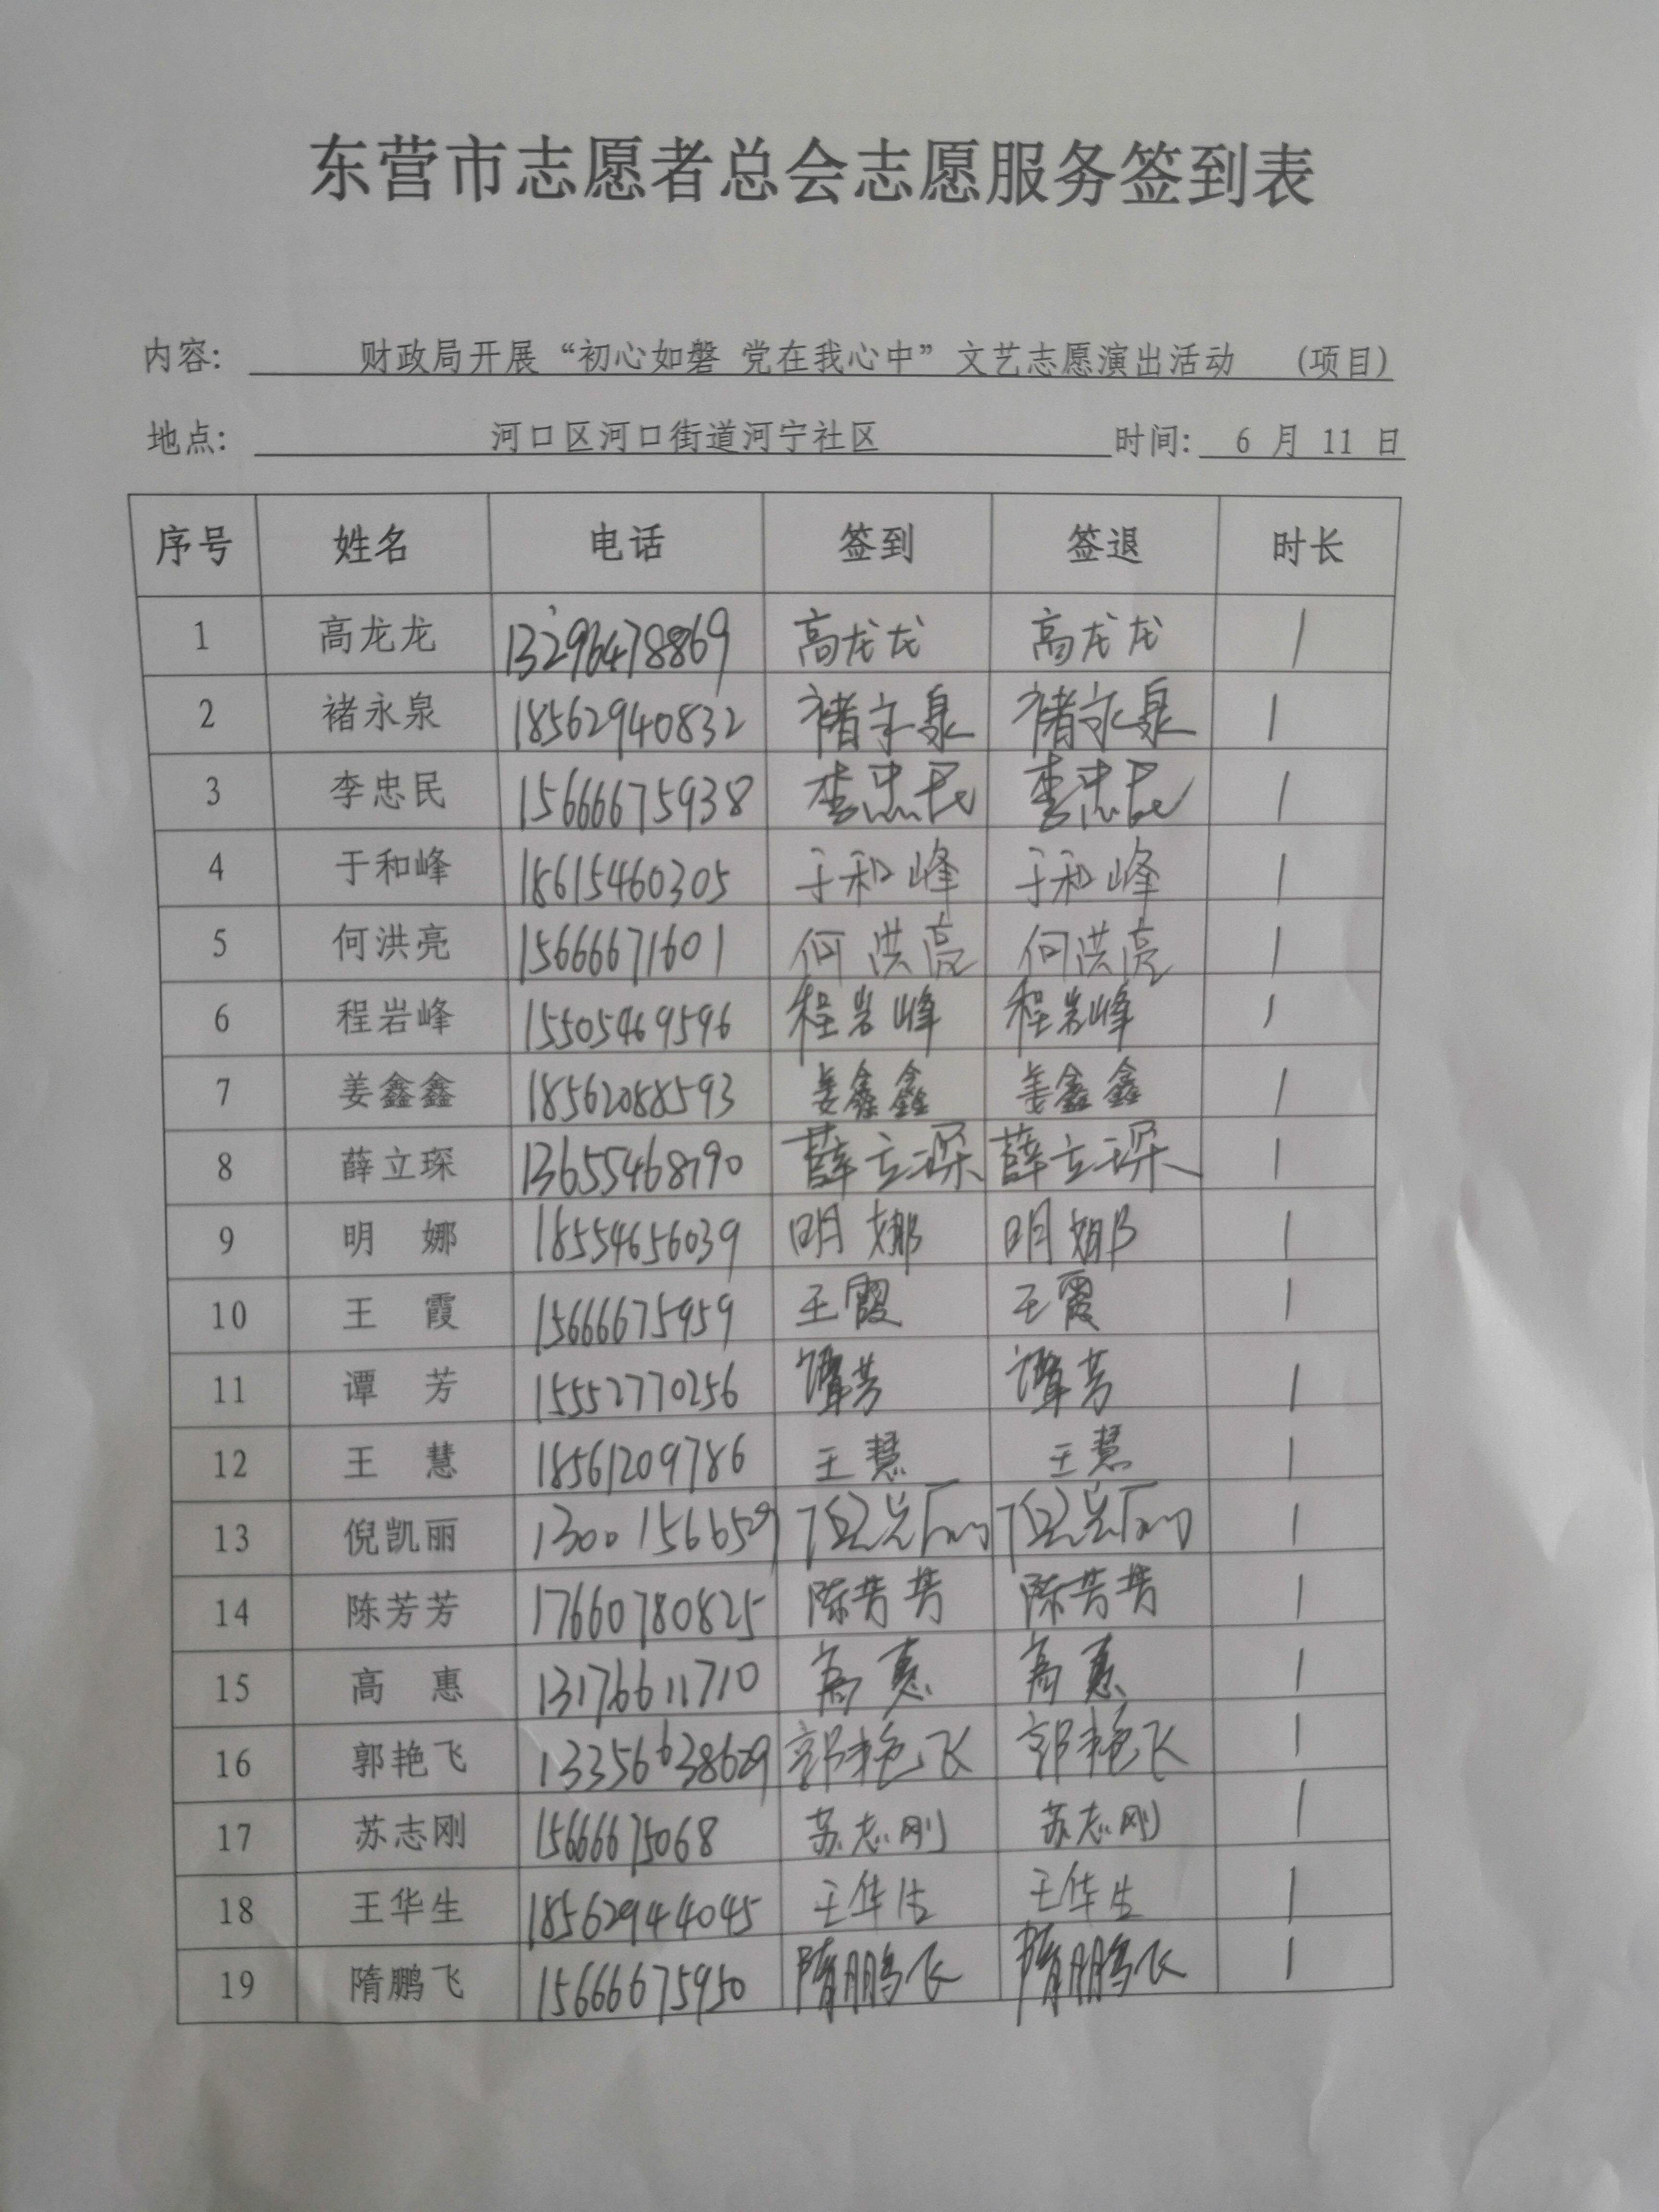 东营市志愿者总会志愿服务签到表
内容: 财政局开展“初心如磐 党在我心中”文艺志愿演出活动 (项目)
地点: 河口区河口街道河宁社区 时间: 6 月 11 日
序号 姓名 电话 签到 签退 时长
1 高龙龙 13296478869 高龙龙 高龙龙 1
2 褚永泉 18562940832 褚永泉 褚永泉 1
3 李忠民 15666675938 李忠民 李忠民 1
4 于和峰 18615460305 于和峰 于和峰 1
5 何洪亮 15666671601 何洪亮 何洪亮 1
6 程岩峰 15505469596 程岩峰 程岩峰 1
7 姜鑫鑫 18562088593 姜鑫鑫 姜鑫鑫 1
8 薛立琛 13655468790 薛立琛 薛立琛 1
9 明 娜 18554656039 明娜 明娜 1
10 王 霞 15666675959 王霞 王霞 1
11 谭 芳 15552770256 谭芳 谭芳 1
12 王 慧 18561209786 王慧 王慧 1
13 倪凯丽 13001566509 倪凯丽 倪凯丽 1
14 陈芳芳 17660780825 陈芳芳 陈芳芳 1
15 高 惠 13176611710 高惠 高惠 1
16 郭艳飞 13356638629 郭艳飞 郭艳飞 1
17 苏志刚 15666675068 苏志刚 苏志刚 1
18 王华生 18562944045 王华生 王华生 1
19 隋鹏飞 15666675950 隋鹏飞 隋鹏飞 1